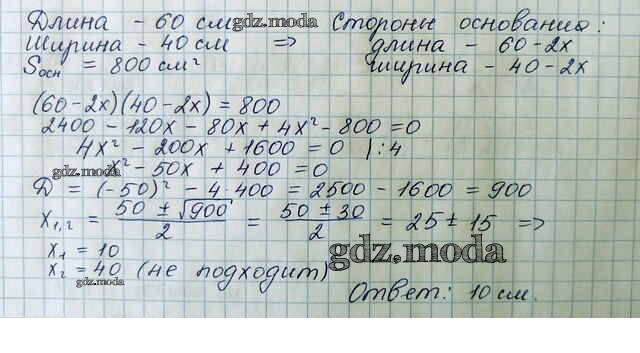 Длина - 60 см gdz.moda Стороны основания:
Ширина - 40 см ⇒ длина - 60-2x
Sосн = 800 см² ширина - 40-2x
(60-2x)(40-2x) = 800
2400 - 120x - 80x + 4x² - 800 = 0
4x² - 200x + 1600 = 0 |:4
gdz.moda x² - 50x + 400 = 0
D = (-50)² - 4·400 = 2500 - 1600 = 900
x₁,₂ = (50 ± √900)/2 = (50 ± 30)/2 = 25 ± 15 ⇒
x₁ = 10
gdz.moda
x₂ = 40 (не подходит)
gdz.moda
Ответ: 10 см.